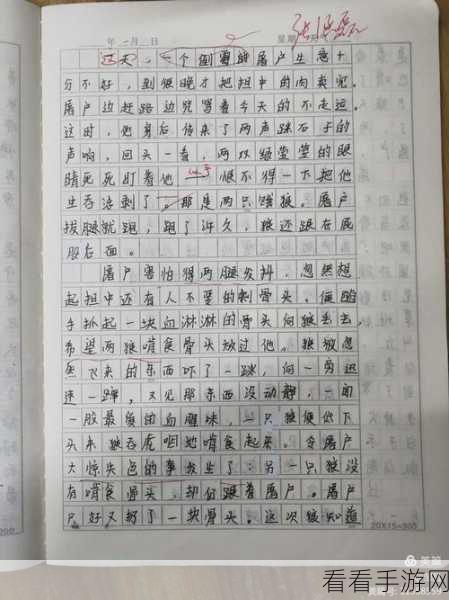 年 月 日 星期
这天,一个倒霉的屠户生意十
分不好,到很晚才把担中的肉卖完。
屠户边赶路边咒骂着今天的不走运。
这时,他身后传来了两声踩石子的
声响,回头一看,两双绿莹莹的眼
睛死死盯着他 恨不得一下把他
生吞活剥了。那是两只饿狼。屠户
拔腿就跑,跑了许久,狼还跟在屁
股后面。
屠户害怕得两腿发抖,忽然想
起担中还有人不要的剩骨头,便随
手抓起一块血淋淋的骨头向狼丢去,
希望两狼啃食骨头放过他。狼被忽
然飞来的东西吓了一跳,向一旁迅
速一蹿,又见那东西没动静,一闻
一股最爱的血腥味,一只狼便低下
头来狼吞虎咽地啃食起来。令屠户
大惊失色的事发生了:另一只狼没
有啃食骨头,却仍跟着屠户。屠户
只好又扔了一块骨头。这次狼知道
20X15=300
美篇
看看手游网